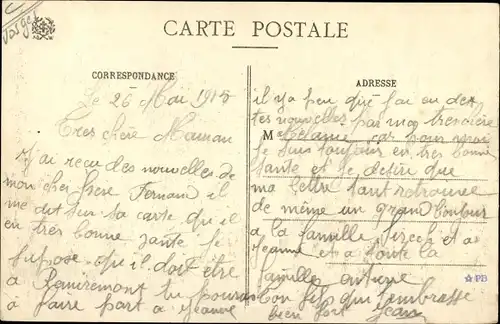 Vosges
CARTE POSTALE
CORRESPONDANCE
Le 26 Mai 1915
Tres chère Maman
J'ai recu des nouvelles de
mon cher frere Fernand il
me dit sur sa carte qu'il
en très bonne sante Je
supose qu'il doit être
a Remiremont tu pouras
a faire part a Jeanne
ADRESSE
il y a peu que j'ai eu de
tes nouvelles par ma
M Melanie car pour moi
je suis toujours en très bonne
sante et je desire que
ma lettre tant retrouve
de même un grand bonjour
a la famille et a
Jeanne et a toute la
famille entiere
Ton fils qui t'embrasse
bien fort Jean
PB